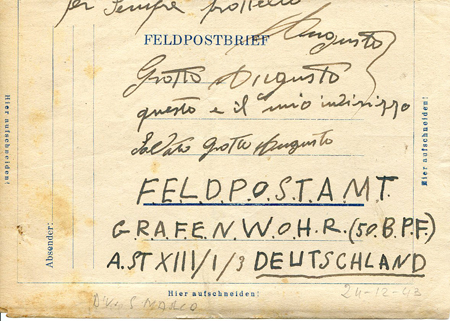 per sempre fratello
Augusto
FELDPOSTBRIEF
Grotto Augusto
questo e il mio indirizzo
Soldato Grotto Augusto
F.E.L.D.P.O.S.T.A.M.T.
G.R.A.F.E.N.W.O.H.R. (50.B.P.F.)
A.ST XIII/1/3 DEUTSCHLAND
Absender:
Hier aufschneiden!
Hier aufschneiden!
Hier aufschneiden!
24-12-43